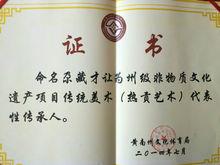 证 书
命名朶藏才让为州级非物质文化
遗产项目传统美术（热贡艺术）代表
性传承人。
黄南州文化体育局
二〇一四年七月